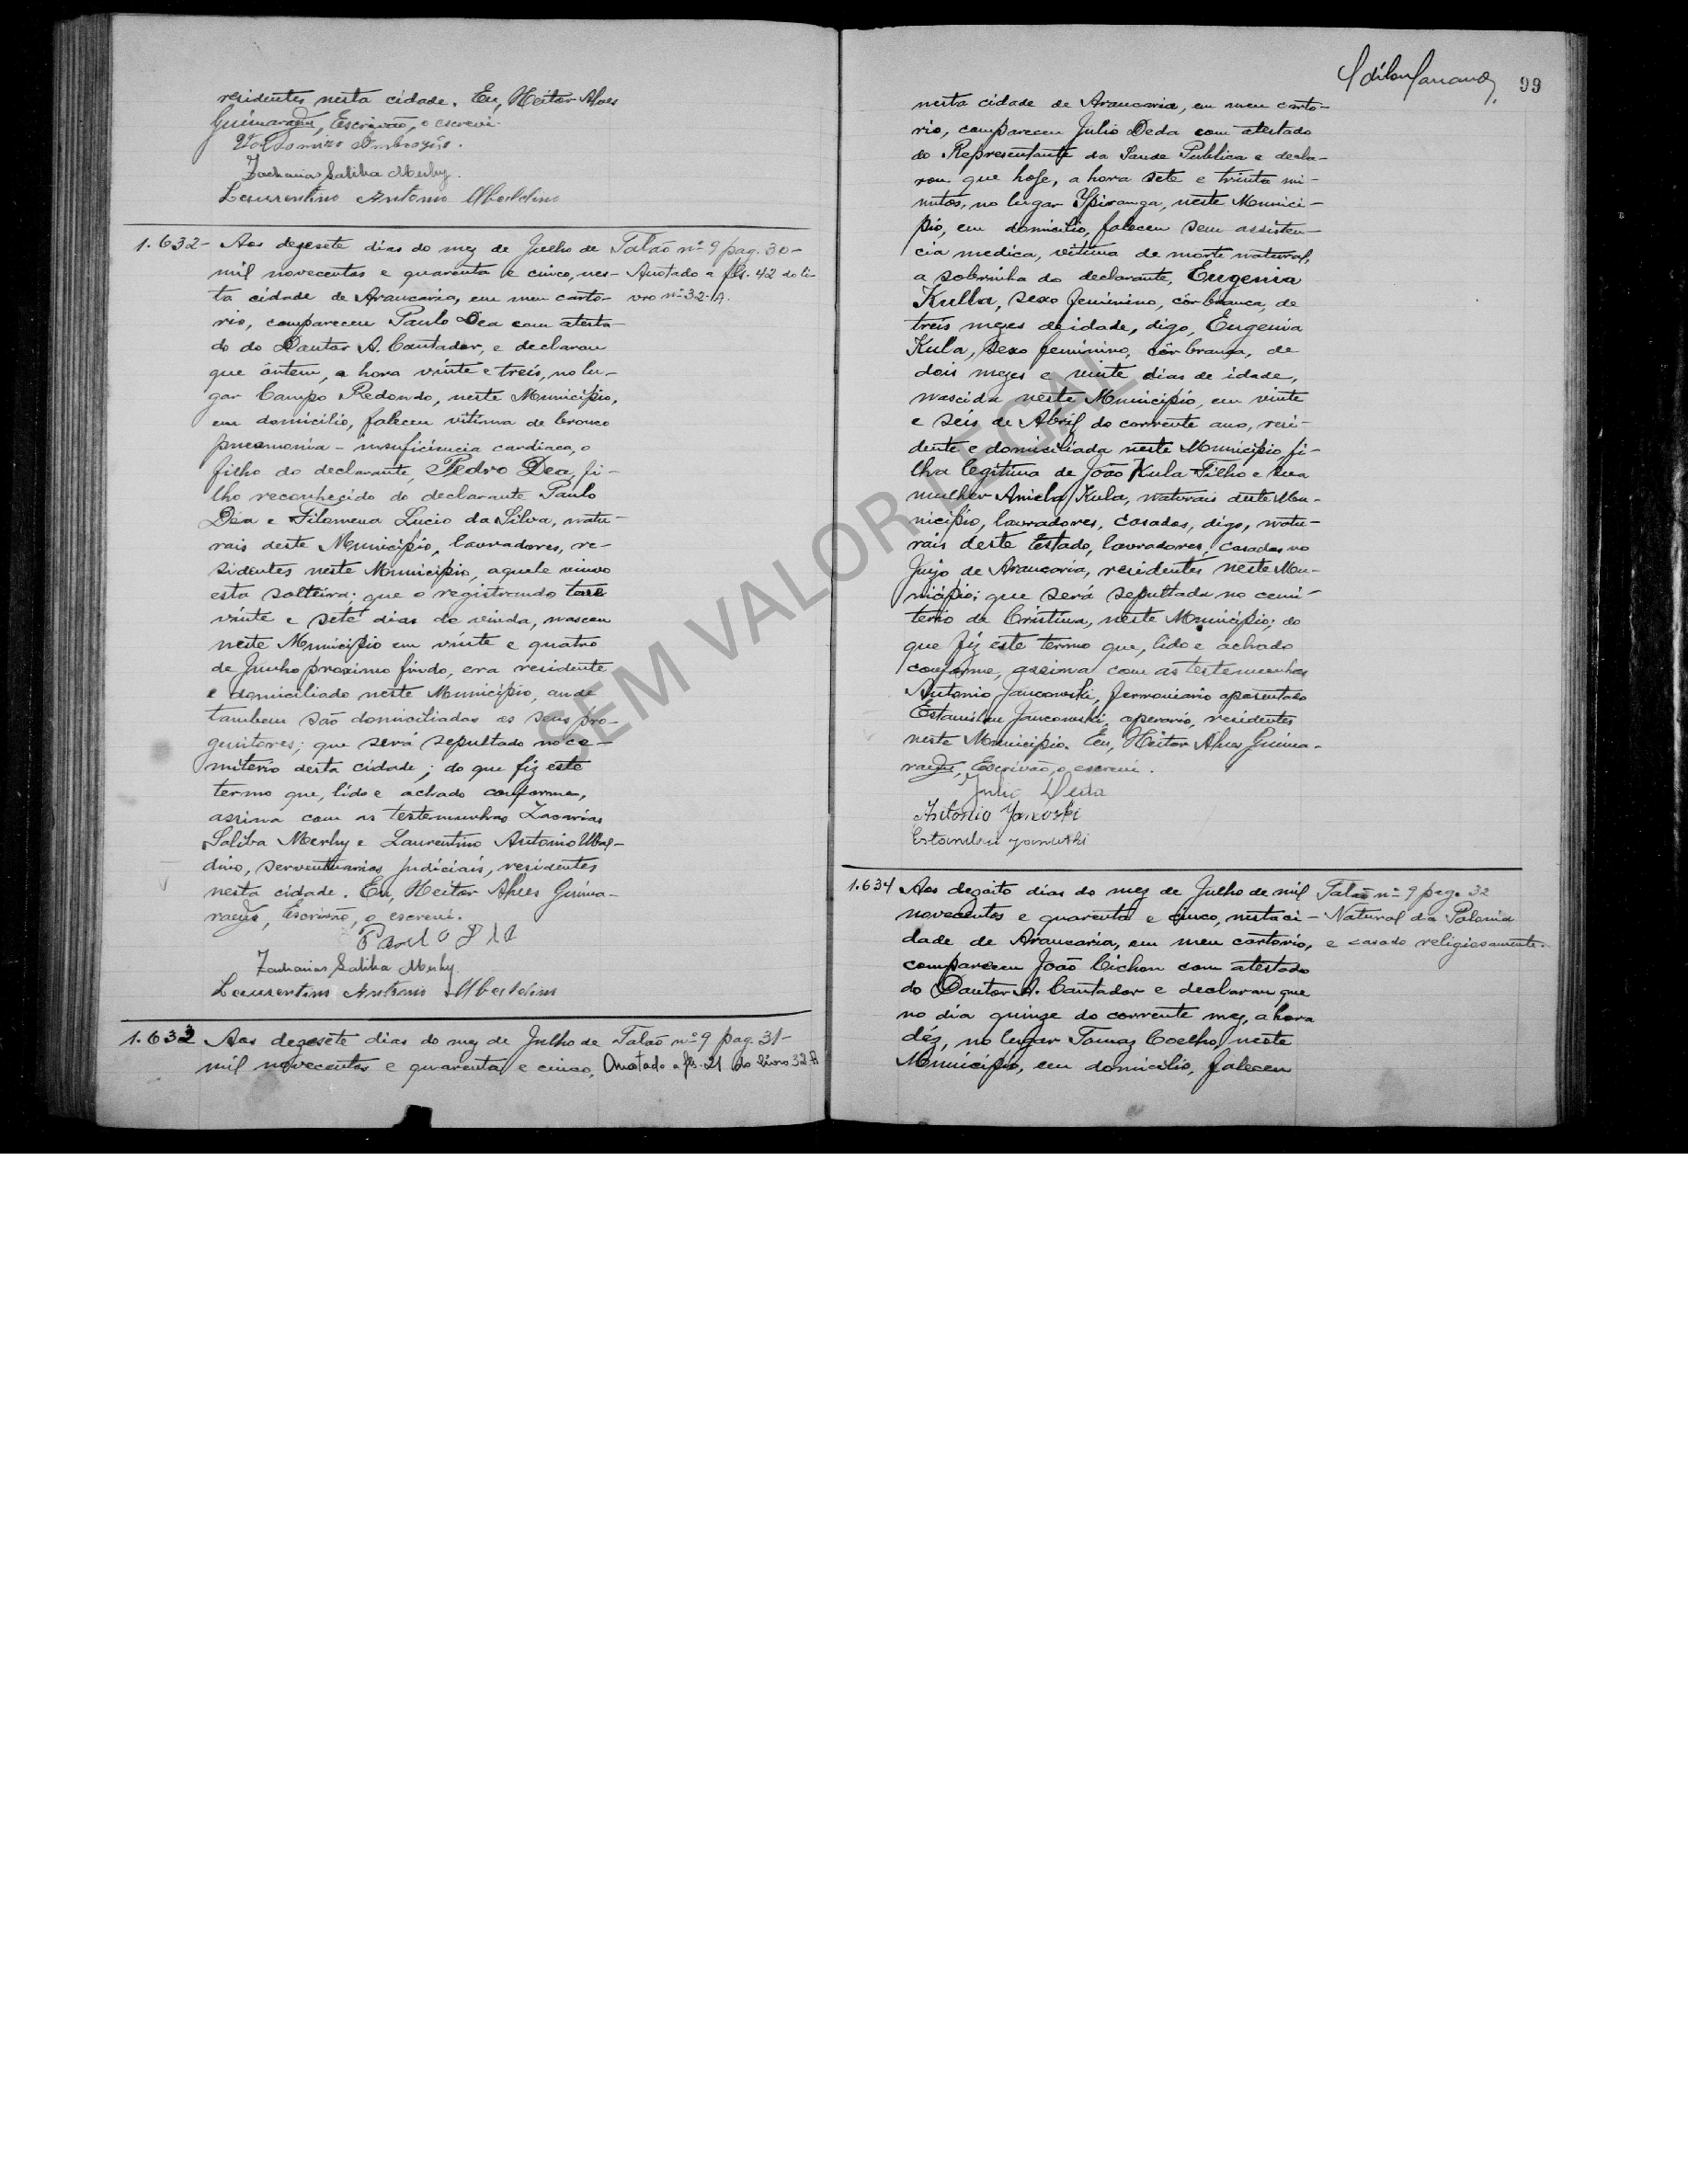 residentes nesta cidade. Eu, Heitor Alves
Guimarães, Escrivão, o escrevi.
Zacharias Saliba Merhy.
Laurentino Antonio Ubaldino
1.632- Aos dezesete dias do mez de Julho de
mil novecentos e quarenta e cinco, nes-
ta cidade de Araucaria, em meu carto-
rio, compareceu Paulo Dea com atesta-
do do Doutor A. Cantador, e declarou
que ôntem, a hora vinte e treis, no lu-
gar Campo Redondo, neste Municipio,
em domicilio, faleceu vitima de bronco
pneumonia - insuficiencia cardiaca, o
filho do declarante, Pedro Dea, fi-
lho reconhecido do declarante Paulo
Déa e Filomena Lucio da Silva, natu-
rais deste Municipio, lavradores, re-
sidentes neste Municipio, aquele viuvo
esta solteira; que o registrando teve
vinte e sete dias de vida, nasceu
neste Municipio em vinte e quatro
de Junho proximo findo, era residente
e domiciliado neste Municipio, onde
tambem são domiciliados os seus pro-
genitores; que será sepultado no ce-
miterio desta cidade; do que fiz este
termo que, lido e achado conforme,
assina com as testemunhas Zacarias
Saliba Merhy e Laurentino Antonio Ubal-
dino, serventuarios judiciais, residentes
nesta cidade. Eu, Heitor Alves Guima-
raes, Escrivão, o escrevi.
Paulo Dea
Zacharias Saliba Merhy.
Laurentino Antonio Ubaldino
Talão nº 9 pag. 30-
Anotado a fls. 42 do li-
vro nº 32-A.
1.633 Aos dezesete dias do mez de Julho de
mil novecentos e quarenta e cinco,
Talão nº 9 pag. 31-
Anotado a fls. 21 do livro 32-A
99
nesta cidade de Araucaria, em meu carto-
rio, compareceu Julio Deda com atestado
do Representante da Saude Publica e decla-
rou que hoje, a hora sete e trinta mi-
nutos, no lugar Ypiranga, neste Munici-
pio, em domicilio, faleceu sem assisten-
cia medica, vitima de morte natural,
a sobrinha do declarante, Eugenia
Kulla, sexo feminino, côr branca, de
treis mezes de idade, digo, Eugenia
Kula, sexo feminino, côr branca, de
dois mezes e vinte dias de idade,
nascida neste Municipio, em vinte
e séis de Abril do corrente ano, resi-
dente e domiciliada neste Municipio, fi-
lha legitima de João Kula Filho e sua
mulher Aniela Kula, naturais deste Mu-
nicipio, lavradores, casados, digo, natu-
rais deste Estado, lavradores, casados no
Juizo de Araucaria, residentes neste Mu-
nicipio; que será sepultada no cemi-
terio de Cristina, neste Municipio; do
que fiz este termo que, lido e achado
conforme, assina com as testemunhas
Antonio Jancowski, ferroviario aposentado
Estanislau Jancowski, operario, residentes
neste Municipio. Eu, Heitor Alves Guima-
raes, Escrivão, o escrevi.
Julio Deda
Antonio Janoski
1.634 Aos dezoito dias do mez de Julho de mil
novecentos e quarenta e cinco, nesta ci-
dade de Araucaria, em meu cartorio,
compareceu João Cichon com atestado
do Doutor A. Cantador e declarou que
no dia quinze do corrente mez, a hora
déz, no lugar Tomaz Coelho, neste
Municipio, em domicilio, faleceu
Talão nº 9 pag. 32
Natural da Polonia
e casado religiosamente.
SEM VALOR LEGAL